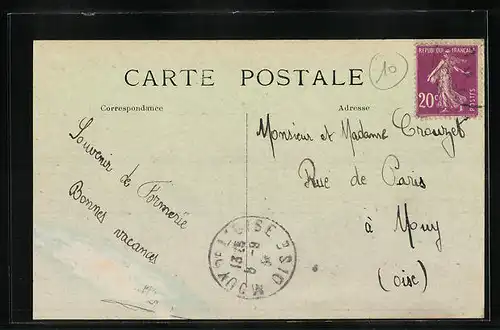 10
REPUBLIQUE FRANÇAISE
20c
POSTES
CARTE POSTALE
Correspondance
Adresse
Souvenir de Formerie
Bonnes vacances
Monsieur et Madame Crouzet
Rue de Paris
à Mouy
(oise)
OISE
13 25
6 - 9
MOUY